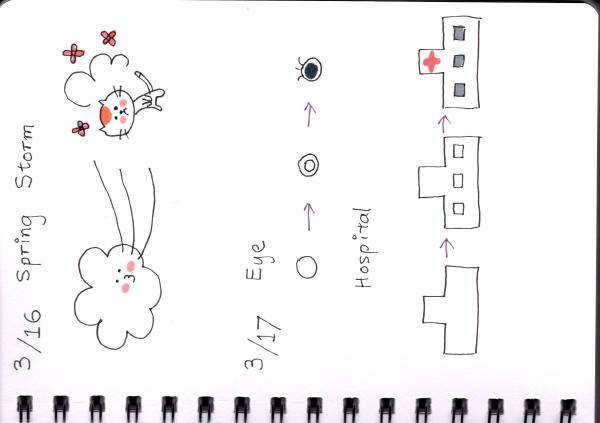 3/16 Spring Storm
3/17 Eye
Hospital